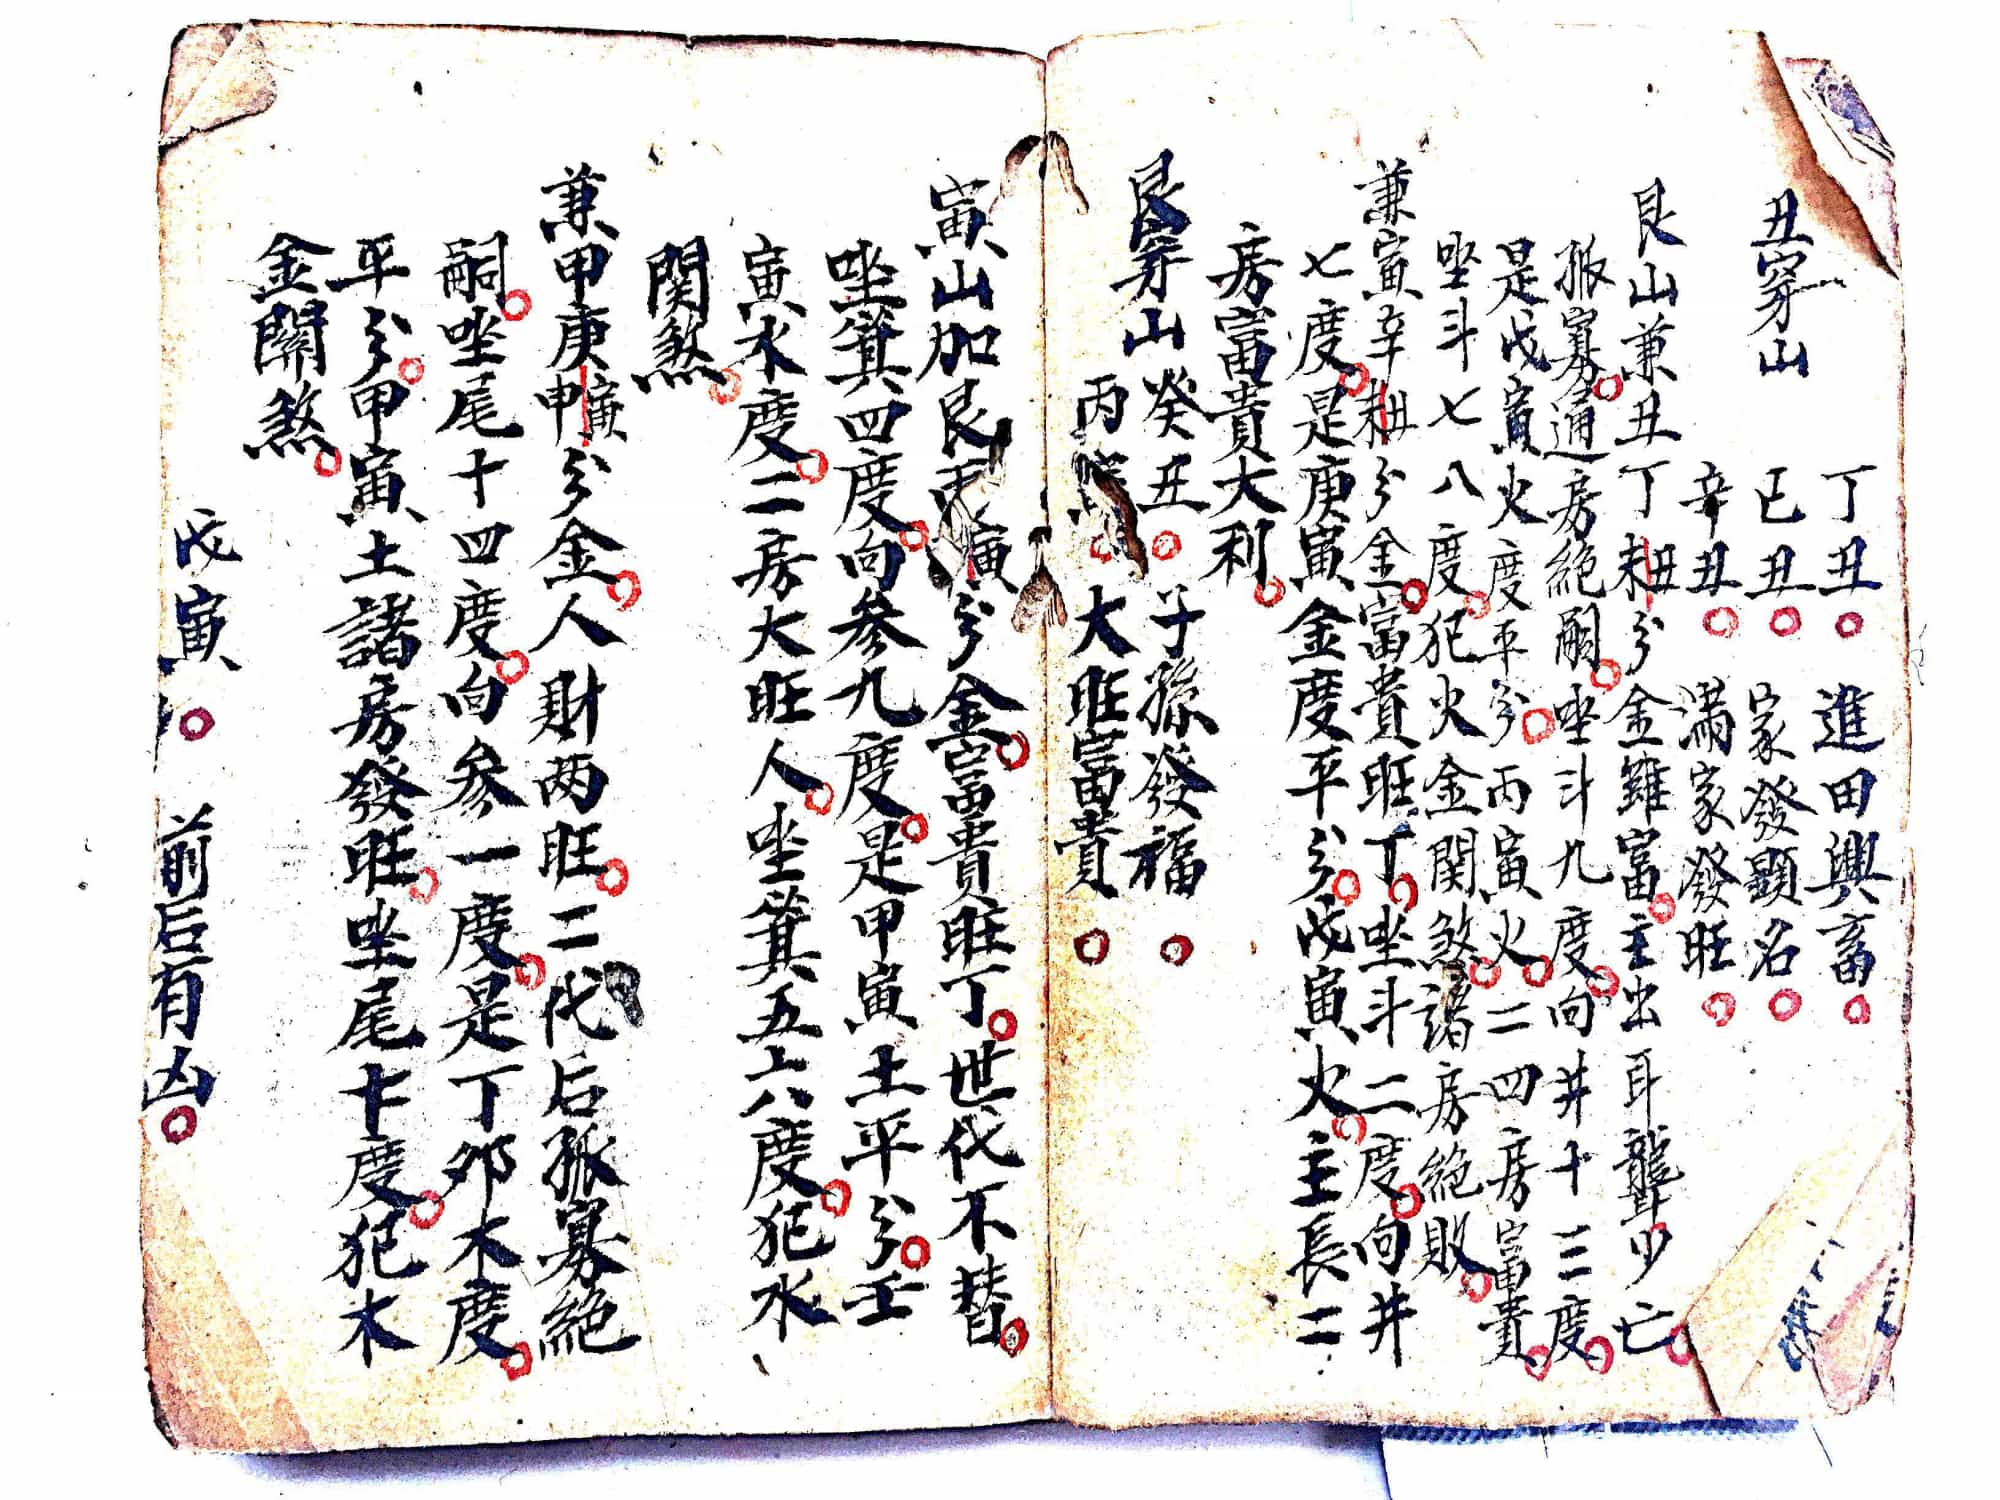 丑穿山
丁丑　進田興畜
已丑　家發顕名
辛丑　滿家發旺
艮山兼丑丁未丑分金雖富主出耳聾少亡
孤寡通房絶嗣坐斗九度向井十三度
是戊寅火度平分丙寅火二四房富貴
坐斗七八度犯火金関煞諸房絶敗
兼寅辛未丑分金富貴旺丁坐斗二度向井
七度是庚寅金度平分戊寅火主長二
房富貴大利
艮穿山
癸丑　子孫發福
丙　大旺富貴
寅山加艮寅分金富貴旺丁世代不替
坐箕四度向參九度是甲寅土平分壬
寅水度二房大旺人坐箕五六度犯水
関煞
兼甲庚申寅分金人財两旺二代后孤寡絶
嗣坐尾十四度向參一度是丁夘木度
平分甲寅土諸房發旺坐尾十度犯木
金關煞
戊寅　前后有凶